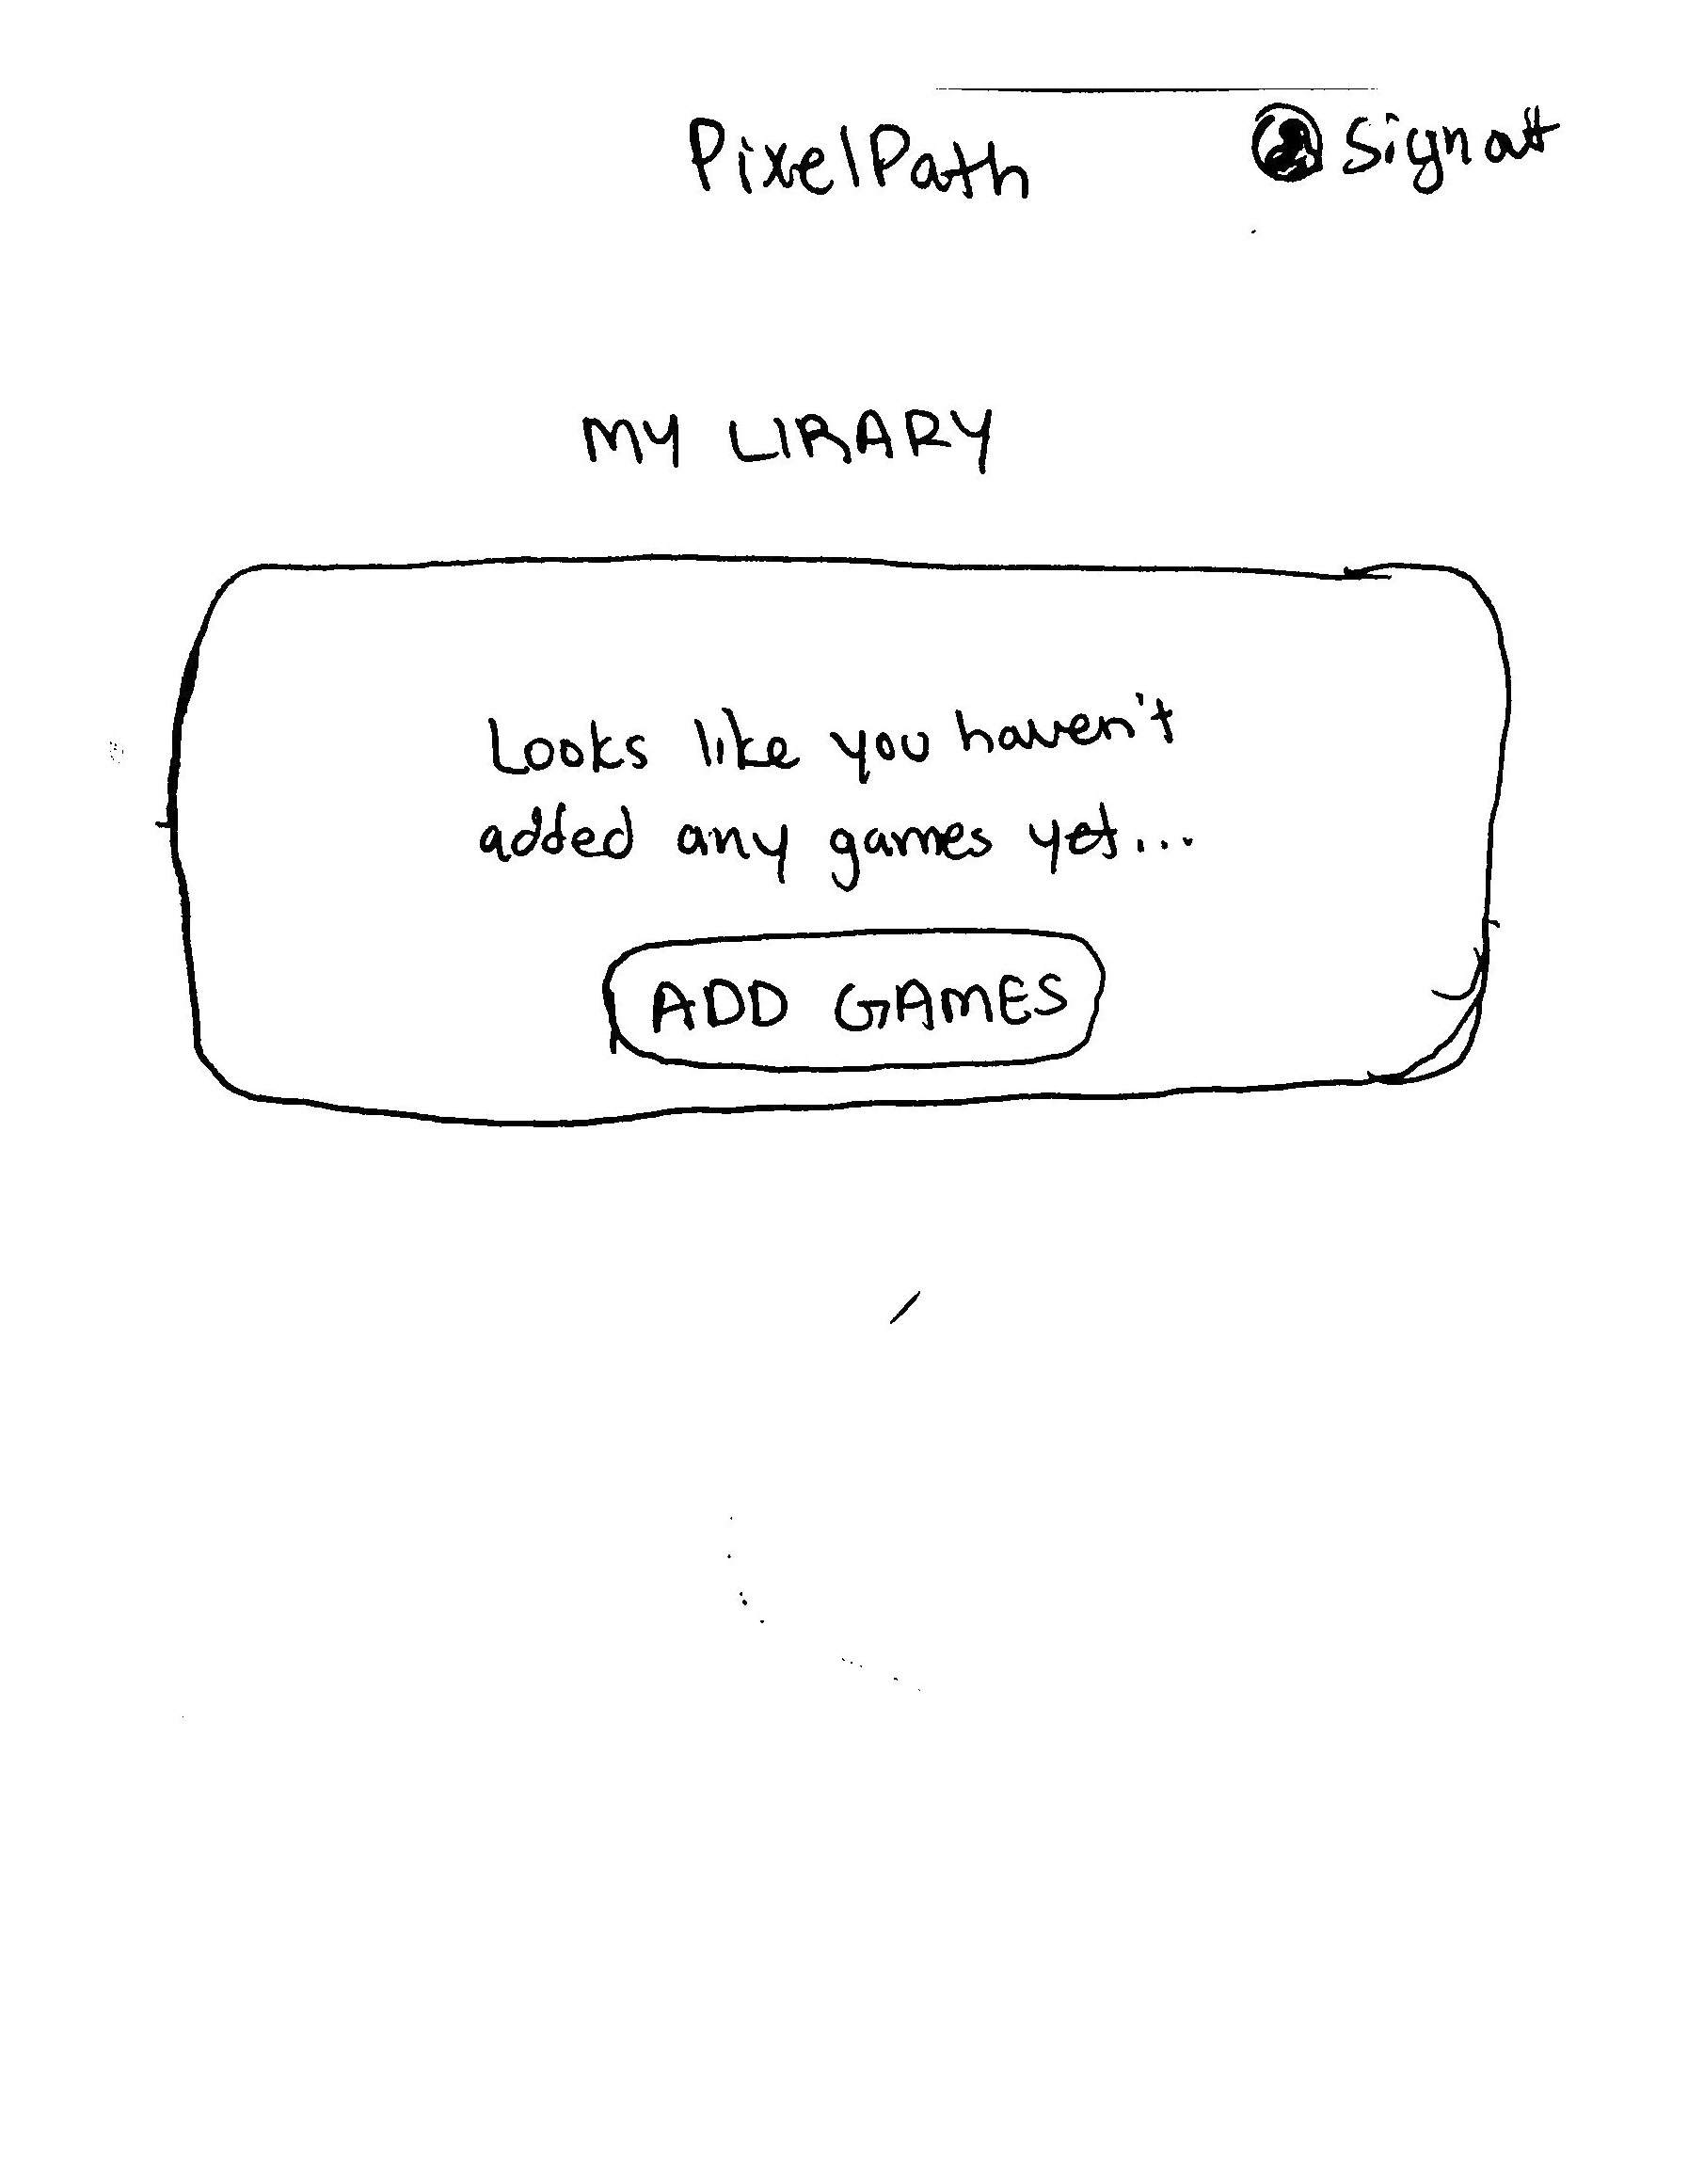 PixelPath
Sign out
MY LIRARY
Looks like you haven't
added any games yet...
ADD GAMES